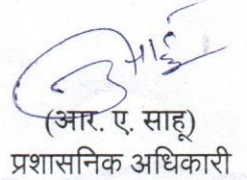 (आर. ए. साहू)
प्रशासनिक अधिकारी